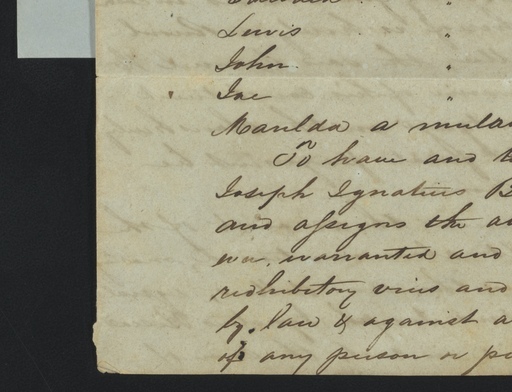 Lewis "
John "
Joe "
Marilda a mula
To have and t
Joseph Ignatius B
and assigns the a
warranted and
redhibitory vices and
by law & against a
of any person or p